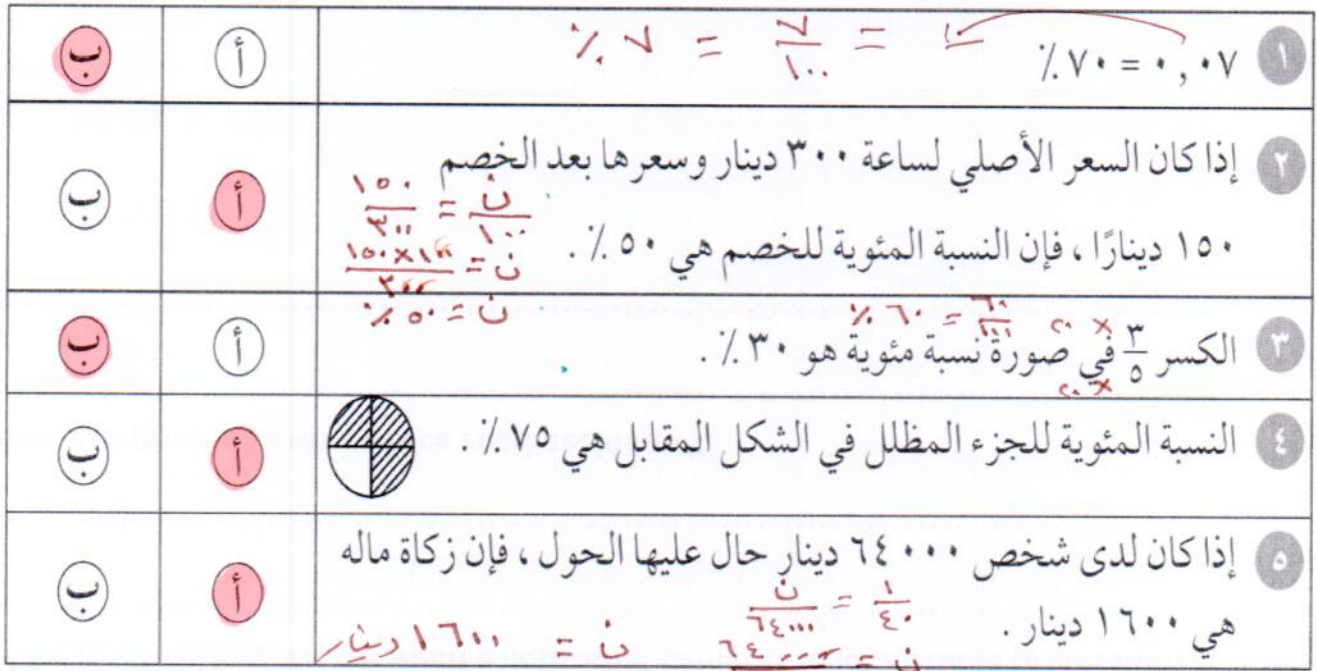 ١ ٠,٠٧ = ٧٠ ٪ أ ب
= ٧/١٠٠ = ٧ ٪
٢ إذا كان السعر الأصلي لساعة ٣٠٠ دينار وسعرها بعد الخصم أ ب
١٥٠ دينارًا ، فإن النسبة المئوية للخصم هي ٥٠ ٪ .
ن/١٠٠ = ١٥٠/٣٠٠
ن = ١٥٠×١٠٠/٣٠٠
ن = ٥٠ ٪
٣ الكسر ٣/٥ في صورة نسبة مئوية هو ٣٠ ٪ . أ ب
×٢٠ ×٢٠ ٦٠/١٠٠ = ٦٠ ٪
٤ النسبة المئوية للجزء المظلل في الشكل المقابل هي ٧٥ ٪ . أ ب
٥ إذا كان لدى شخص ٦٤٠٠٠ دينار حال عليها الحول ، فإن زكاة ماله أ ب
هي ١٦٠٠ دينار .
١/٤٠ = ن/٦٤٠٠٠
ن = ٦٤٠٠٠ ن = ١٦٠٠ دينار